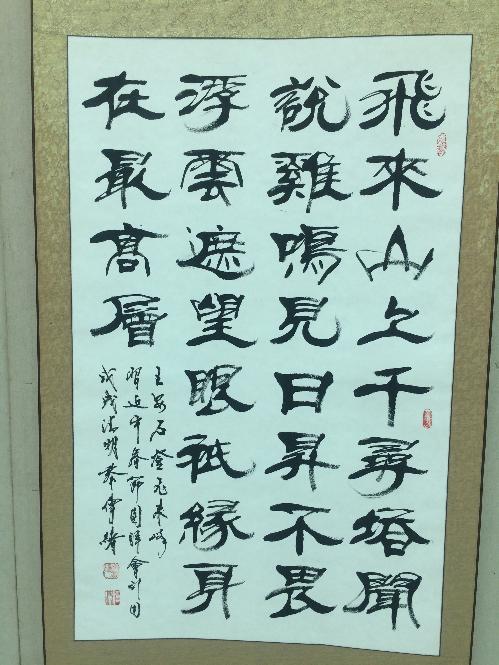 飛來山上千尋塔聞
說雞鳴見日昇不畏
浮雲遮望眼祇緣身
在最高層
王安石登飛來峰
習近平春節團拜會引用
戊戌清明